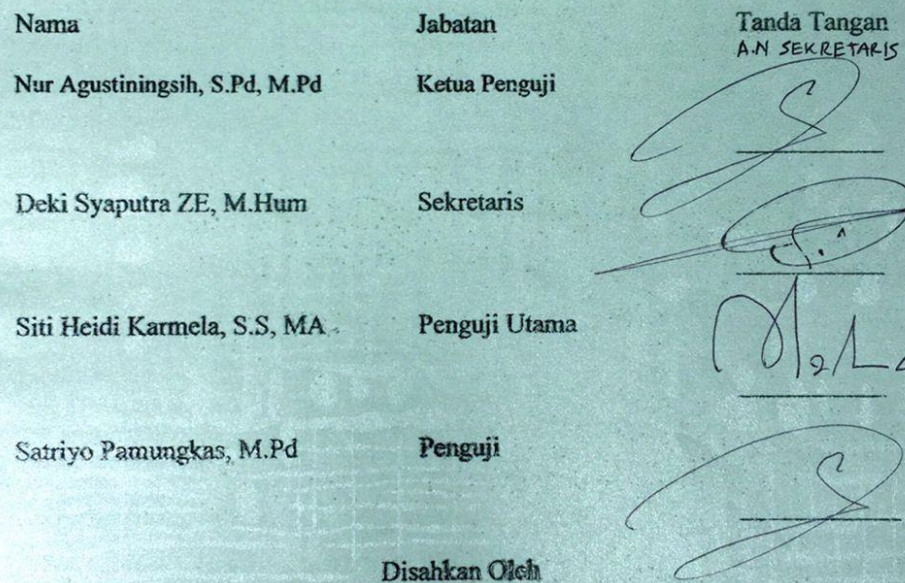 Nama Jabatan Tanda Tangan
A.N SEKRETARIS
Nur Agustiningsih, S.Pd, M.Pd Ketua Penguji
Deki Syaputra ZE, M.Hum Sekretaris
Siti Heidi Karmela, S.S, MA Penguji Utama
Satriyo Pamungkas, M.Pd Penguji
Disahkan Oleh